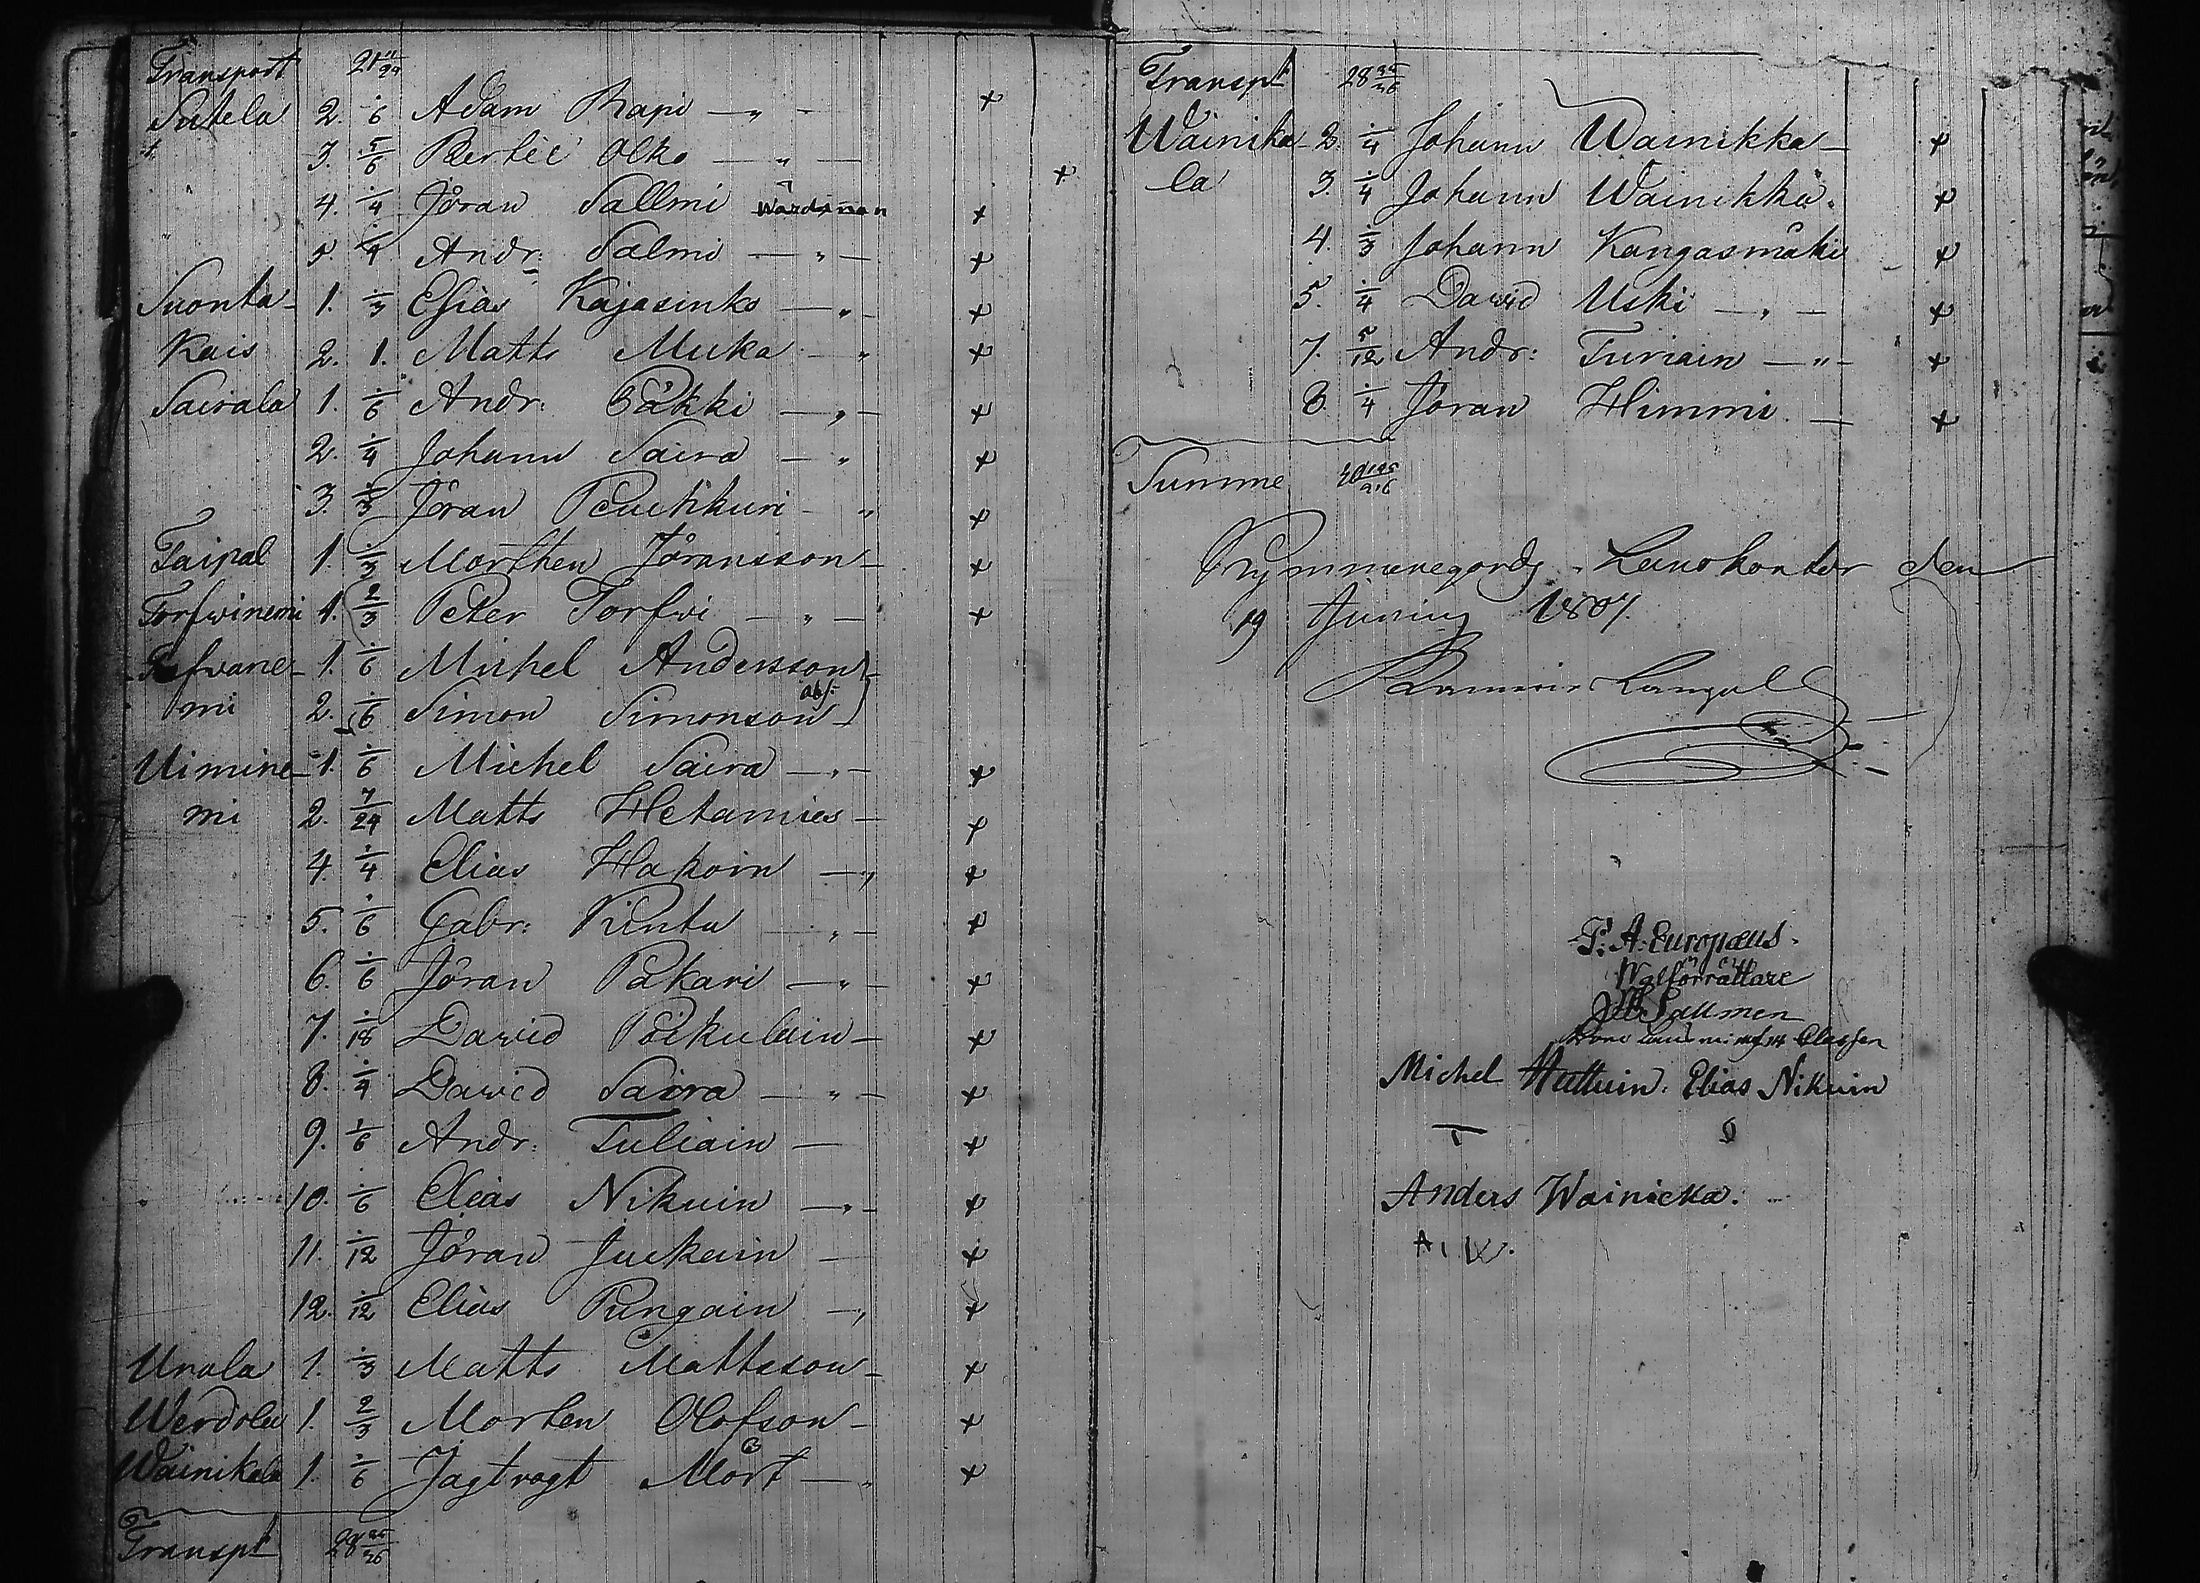 Transport 21 11/24
Sutela 2. 1/6 Adam Rapi — " - +
" 3. 5/6 Bertil Olko — " — +
" 4. 1/4 Jöran Sallmi Wärdsman +
" 5. 1/4 Andr: Salmi — " — +
Suonta- 1. 1/3 Elias Kajasinko — " - +
Kais 2. 1. Matts Muka — " +
Sairala 1. 1/6 Andr: Päkki — " - +
2. 1/4 Johann Saira — " +
3. 1/3 Jöran Peuhkuri - " +
Taipal 1. 1/3 Morthen Jöransson - +
Torfwinemi 1. 2/3 Peter Torfvi — " — +
1. 1/6 Michel Andersson -
mi 2. 1/6 Simon Simonson abs:
Uimine- 1. 1/6 Michel Saira — " - +
mi 2. 7/24 Matts Hetamies - +
4. 1/4 Elias Hakoin — " +
5. 1/6 Gabr: Kinta — " - +
6. 1/6 Jöran Pakari — " - +
7. 1/18 David Poikulain - +
8. 1/4 David Saira — " - +
9. 1/6 Andr: Tuliain — +
10. 1/6 Elias Nikuin — " - +
11. 1/12 Jöran Juckain — +
12. 1/12 Elias Pungain — " +
Urala 1. 1/3 Matts Mattsson - +
Werdola 1. 2/3 Morten Olofson - +
Wäinikala 1. 1/6 Jagtvogt Mört — " +
Transpt 28 35/36
Transpt 28 35/36
Wäinika- 2. 1/4 Johann Wainikka - +
la 3. 1/4 Johann Wäinikkä " +
4. 1/3 Johann Kangasmäki +
5. 1/4 David Uski — " — +
7. 5/12 Andr: Turiain — " - +
8. 1/4 Jöran Himmi — +
Summe
Kymmenegords Lanskontor den
19 Junius 1807.
P: A: Europæus.
Walförrättare
Sallmen
Michel Huttuin. Elias Nikuin
Anders Wainicka.
A. W.